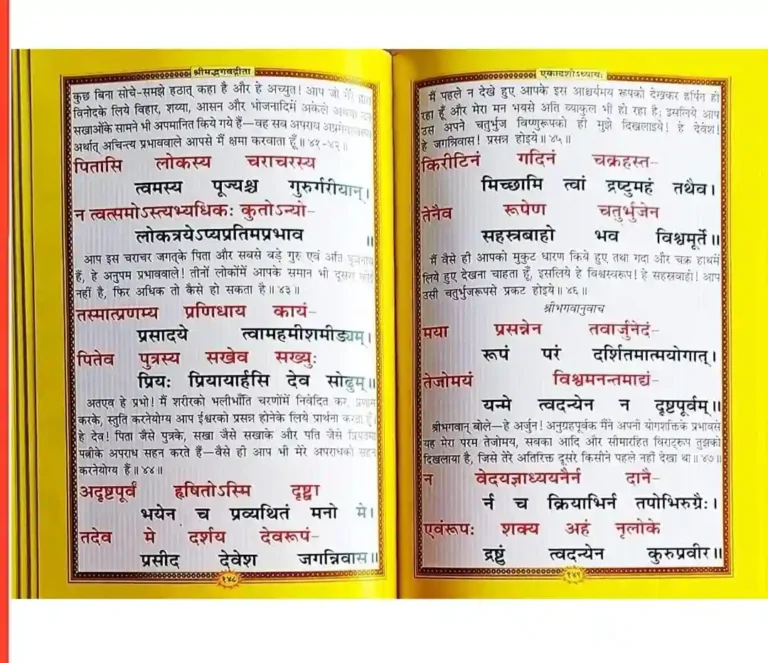 श्रीमद्भगवद्गीता
कुछ बिना सोचे-समझे हठात् कहा है और हे अच्युत! आप जो मेरे द्वारा
विनोदके लिये विहार, शय्या, आसन और भोजनादिमें अकेले अथवा उन
सखाओंके सामने भी अपमानित किये गये हैं—वह सब अपराध अप्रमेयस्वरूप
अर्थात् अचिन्त्य प्रभाववाले आपसे मैं क्षमा करवाता हूँ॥ ४१-४२॥
पितासि लोकस्य चराचरस्य
त्वमस्य पूज्यश्च गुरुर्गरीयान्।
न त्वत्समोऽस्त्यभ्यधिकः कुतोऽन्यो-
लोकत्रयेऽप्यप्रतिमप्रभाव ॥
आप इस चराचर जगत्‌के पिता और सबसे बड़े गुरु एवं अति पूजनीय
हैं, हे अनुपम प्रभाववाले! तीनों लोकोंमें आपके समान भी दूसरा कोई
नहीं है, फिर अधिक तो कैसे हो सकता है॥ ४३॥
तस्मात्प्रणम्य प्रणिधाय कायं-
प्रसादये त्वामहमीशमीड्यम्।
पितेव पुत्रस्य सखेव सख्युः
प्रियः प्रियायार्हसि देव सोढुम्॥
अतएव हे प्रभो! मैं शरीरको भलीभाँति चरणोंमें निवेदित कर, प्रणाम
करके, स्तुति करनेयोग्य आप ईश्वरको प्रसन्न होनेके लिये प्रार्थना करता हूँ।
हे देव! पिता जैसे पुत्रके, सखा जैसे सखाके और पति जैसे प्रियतमा
पत्नीके अपराध सहन करते हैं—वैसे ही आप भी मेरे अपराधको सहन
करनेयोग्य हैं॥ ४४॥
अदृष्टपूर्वं हृषितोऽस्मि दृष्ट्वा
भयेन च प्रव्यथितं मनो मे।
तदेव मे दर्शय देवरूपं-
प्रसीद देवेश जगन्निवास॥
१४८
एकादशोऽध्यायः
मैं पहले न देखे हुए आपके इस आश्चर्यमय रूपको देखकर हर्षित हो
रहा हूँ और मेरा मन भयसे अति व्याकुल भी हो रहा है; इसलिये आप
उस अपने चतुर्भुज विष्णुरूपको ही मुझे दिखलाइये! हे देवेश!
हे जगन्निवास! प्रसन्न होइये॥ ४५॥
किरीटिनं गदिनं चक्रहस्त-
मिच्छामि त्वां द्रष्टुमहं तथैव।
तेनैव रूपेण चतुर्भुजेन
सहस्रबाहो भव विश्वमूर्ते॥
मैं वैसे ही आपको मुकुट धारण किये हुए तथा गदा और चक्र हाथमें
लिये हुए देखना चाहता हूँ, इसलिये हे विश्वस्वरूप! हे सहस्रबाहो! आप
उसी चतुर्भुजरूपसे प्रकट होइये॥ ४६॥
श्रीभगवानुवाच
मया प्रसन्नेन तवार्जुनेदं-
रूपं परं दर्शितमात्मयोगात्।
तेजोमयं विश्वमनन्तमाद्यं-
यन्मे त्वदन्येन न दृष्टपूर्वम्॥
श्रीभगवान् बोले—हे अर्जुन! अनुग्रहपूर्वक मैंने अपनी योगशक्तिके प्रभावसे
यह मेरा परम तेजोमय, सबका आदि और सीमारहित विराट्‌रूप तुझको
दिखलाया है, जिसे तेरे अतिरिक्त दूसरे किसीने पहले नहीं देखा था॥ ४७॥
न वेदयज्ञाध्ययनैर्न दानै-
र्न च क्रियाभिर्न तपोभिरुग्रैः।
एवंरूपः शक्य अहं नृलोके
द्रष्टुं त्वदन्येन कुरुप्रवीर॥
१४९